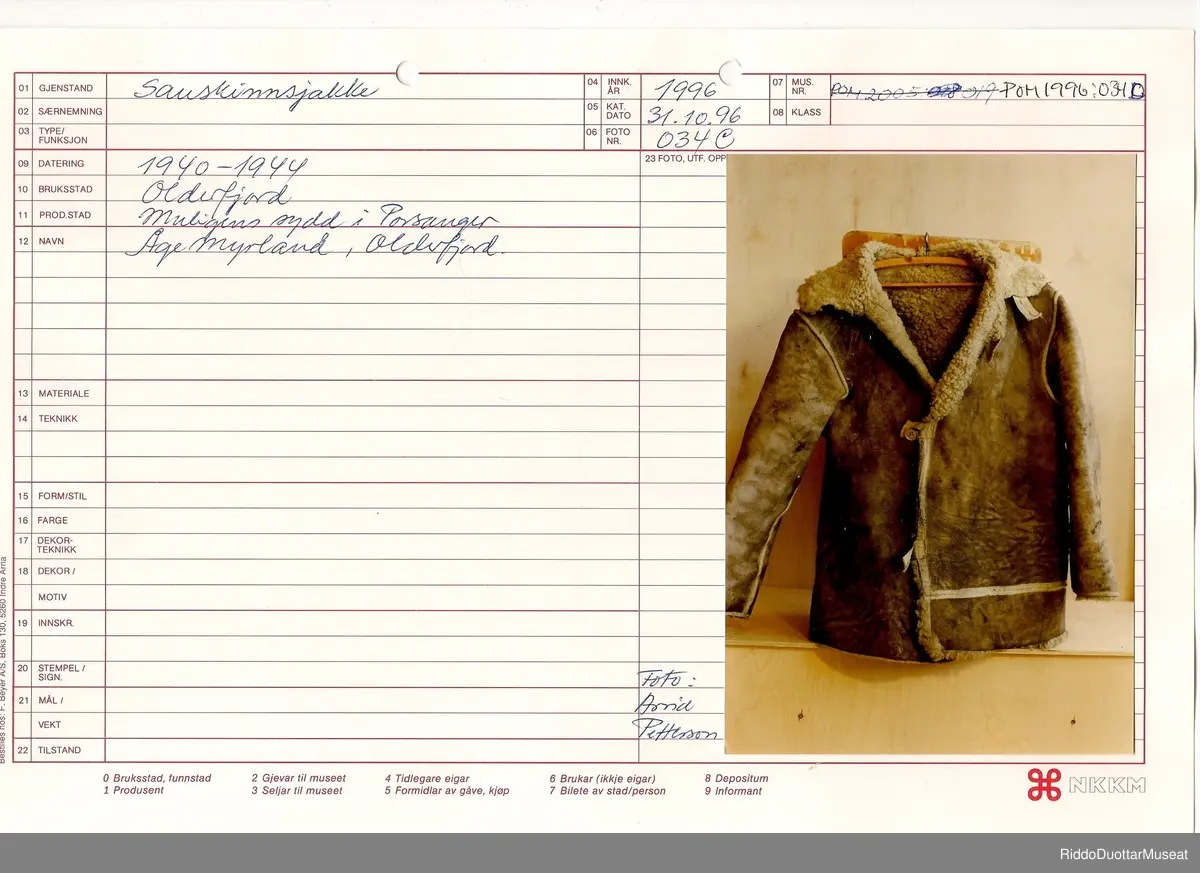 01 GJENSTAND Sauskinnsjakke
04 INNK. ÅR 1996
07 MUS. NR. POM 1996:034D
02 SÆRNEMNING
05 KAT. DATO 31.10.96
08 KLASS
03 TYPE/ FUNKSJON
06 FOTO NR. 034C
09 DATERING 1940-1944
23 FOTO, UTF. OPP
10 BRUKSSTAD Olderfjord
11 PROD.STAD Muligens sydd i Porsanger
12 NAVN Åge Myrland, Olderfjord.
13 MATERIALE
14 TEKNIKK
15 FORM/STIL
16 FARGE
17 DEKOR-TEKNIKK
18 DEKOR /
MOTIV
19 INNSKR.
20 STEMPEL / SIGN.
21 MÅL /
VEKT
22 TILSTAND
Foto:
Arvid
Petterson
Bestilles hos: F. Beyer A/S, Boks 130, 5260 Indre Arna
0 Bruksstad, funnstad
1 Produsent
2 Gjevar til museet
3 Seljar til museet
4 Tidlegare eigar
5 Formidlar av gåve, kjøp
6 Brukar (ikkje eigar)
7 Bilete av stad/person
8 Depositum
9 Informant
NKKM
RiddoDuottarMuseat